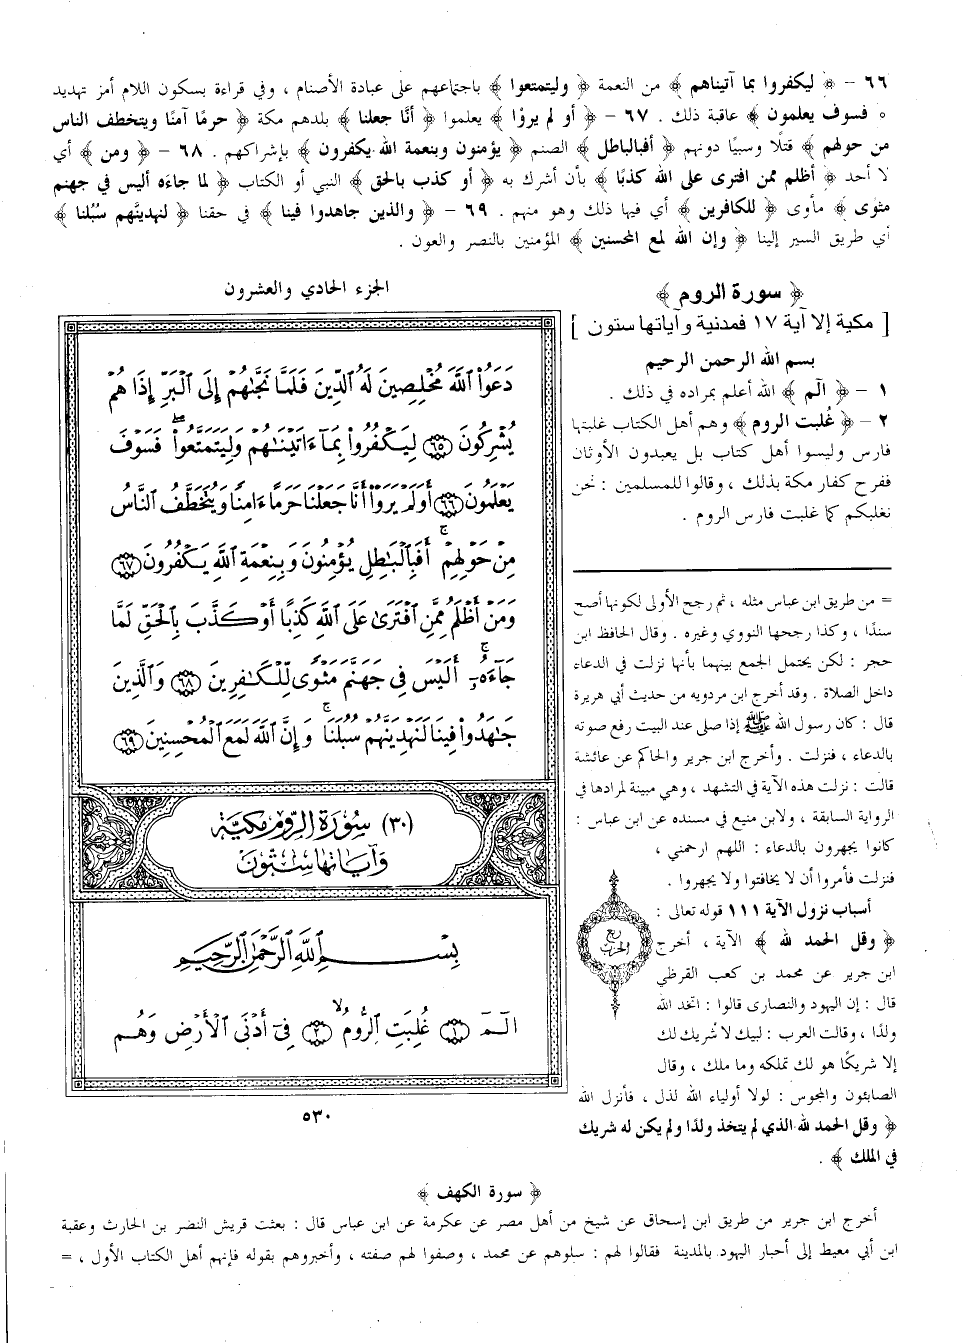 ٦٦ - ﴿ ليكفروا بما آتيناهم ﴾ من النعمة ﴿ وليتمتعوا ﴾ باجتماعهم على عبادة الأصنام ، وفي قراءة بسكون اللام أمر تهديد
﴿ فسوف يعلمون ﴾ عاقبة ذلك . ٦٧ - ﴿ أو لم يروْا ﴾ يعلموا ﴿ أنَّا جعلنا ﴾ بلدهم مكة ﴿ حرمًا آمنًا ويتخطف الناس
من حولهم ﴾ قتلًا وسبيًا دونهم ﴿ أفبالباطل ﴾ الصنم ﴿ يؤمنون وبنعمة الله يكفرون ﴾ بإشراكهم . ٦٨ - ﴿ ومن ﴾ أي
لا أحد ﴿ أظلم ممن افترى على الله كذبًا ﴾ بأن أشرك به ﴿ أو كذب بالحق ﴾ النبي أو الكتاب ﴿ لما جاءه أليس في جهنم
مثوى ﴾ مأوى ﴿ للكافرين ﴾ أي فيها ذلك وهو منهم . ٦٩ - ﴿ والذين جاهدوا فينا ﴾ في حقنا ﴿ لنهدينَّهم سُبُلنا ﴾
أي طريق السير إلينا ﴿ وإن الله لمع المحسنين ﴾ المؤمنين بالنصر والعون .
﴿ سورة الروم ﴾
[ مكية إلا آية ١٧ فمدنية وآياتها ستون ]
بسم الله الرحمن الرحيم
١ - ﴿ الٓم ﴾ الله أعلم بمراده في ذلك .
٢ - ﴿ غُلبت الروم ﴾ وهم أهل الكتاب غلبتها
فارس وليسوا أهل كتاب بل يعبدون الأوثان
ففرح كفار مكة بذلك ، وقالوا للمسلمين : نحن
نغلبكم كما غلبت فارس الروم .
الجزء الحادي والعشرون
دَعَوُا۟ ٱللَّهَ مُخْلِصِينَ لَهُ ٱلدِّينَ فَلَمَّا نَجَّىٰهُمْ إِلَى ٱلْبَرِّ إِذَا هُمْ
يُشْرِكُونَ ٦٥ لِيَكْفُرُوا۟ بِمَآ ءَاتَيْنَٰهُمْ وَلِيَتَمَتَّعُوا۟ ۖ فَسَوْفَ
يَعْلَمُونَ ٦٦ أَوَلَمْ يَرَوْا۟ أَنَّا جَعَلْنَا حَرَمًا ءَامِنًا وَيُتَخَطَّفُ ٱلنَّاسُ
مِنْ حَوْلِهِمْ ۚ أَفَبِٱلْبَٰطِلِ يُؤْمِنُونَ وَبِنِعْمَةِ ٱللَّهِ يَكْفُرُونَ ٦٧
وَمَنْ أَظْلَمُ مِمَّنِ ٱفْتَرَىٰ عَلَى ٱللَّهِ كَذِبًا أَوْ كَذَّبَ بِٱلْحَقِّ لَمَّا
جَآءَهُۥٓ ۚ أَلَيْسَ فِى جَهَنَّمَ مَثْوًى لِّلْكَٰفِرِينَ ٦٨ وَٱلَّذِينَ
جَٰهَدُوا۟ فِينَا لَنَهْدِيَنَّهُمْ سُبُلَنَا ۚ وَإِنَّ ٱللَّهَ لَمَعَ ٱلْمُحْسِنِينَ ٦٩
(٣٠) سُورَةُ الرُّومِ مَكِّيَّة
وَآيَاتُهَا سِتُّونَ
بِسْمِ ٱللَّهِ ٱلرَّحْمَٰنِ ٱلرَّحِيمِ
الٓمٓ ١ غُلِبَتِ ٱلرُّومُ ٢ فِىٓ أَدْنَى ٱلْأَرْضِ وَهُم
٥٣٠
= من طريق ابن عباس مثله ، ثم رجح الأولى لكونها أصح
سندًا ، وكذا رجحها النووي وغيره . وقال الحافظ ابن
حجر : لكن يحتمل الجمع بينهما بأنها نزلت في الدعاء
داخل الصلاة . وقد أخرج ابن مردويه من حديث أبي هريرة
قال : كان رسول الله ﷺ إذا صلى عند البيت رفع صوته
بالدعاء ، فنزلت . وأخرج ابن جرير والحاكم عن عائشة
قالت : نزلت هذه الآية في التشهد ، وهي مبينة لمرادها في
الرواية السابقة ، ولابن منيع في مسنده عن ابن عباس :
كانوا يجهرون بالدعاء : اللهم ارحمني ،
فنزلت فأمروا أن لا يخافتوا ولا يجهروا .
أسباب نزول الآية ١١١ قوله تعالى :
﴿ وقل الحمد لله ﴾ الآية ، أخرج
ابن جرير عن محمد بن كعب القرظي
قال : إن اليهود والنصارى قالوا : اتخذ الله
ولدًا ، وقالت العرب : لبيك لا شريك لك
إلا شريكًا هو لك تملكه وما ملك ، وقال
الصابئون والمجوس : لولا أولياء الله لذل ، فأنزل الله
﴿ وقل الحمد لله الذي لم يتخذ ولدًا ولم يكن له شريك
في الملك ﴾ .
ربع
الحزب
﴿ سورة الكهف ﴾
أخرج ابن جرير من طريق ابن إسحاق عن شيخ من أهل مصر عن عكرمة عن ابن عباس قال : بعثت قريش النضر بن الحارث وعقبة
ابن أبي معيط إلى أحبار اليهود بالمدينة فقالوا لهم : سلوهم عن محمد ، وصفوا لهم صفته ، وأخبروهم بقوله فإنهم أهل الكتاب الأول ، =